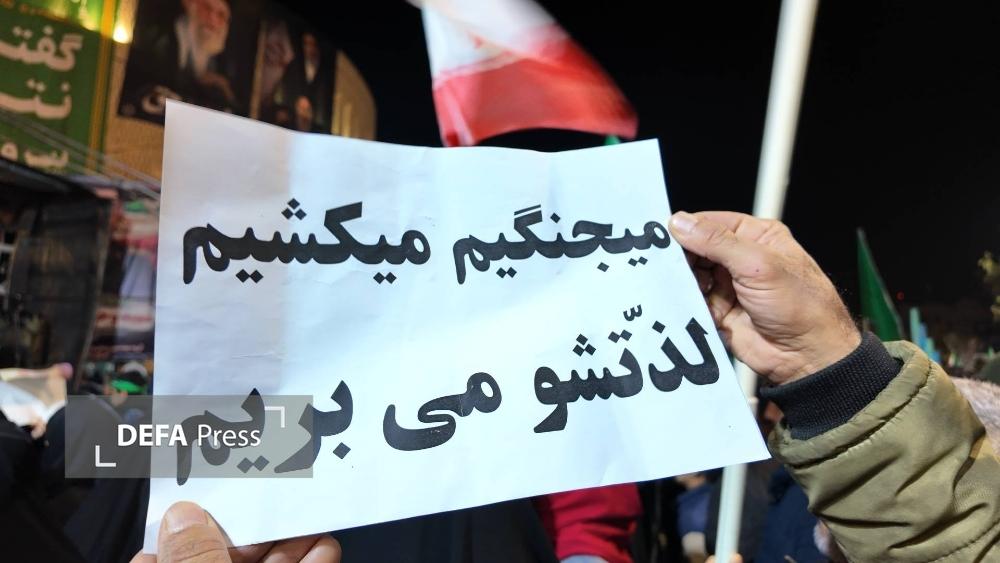 گفت
نت
میجنگیم میکشیم
لذّتشو می بریم
DEFA Press